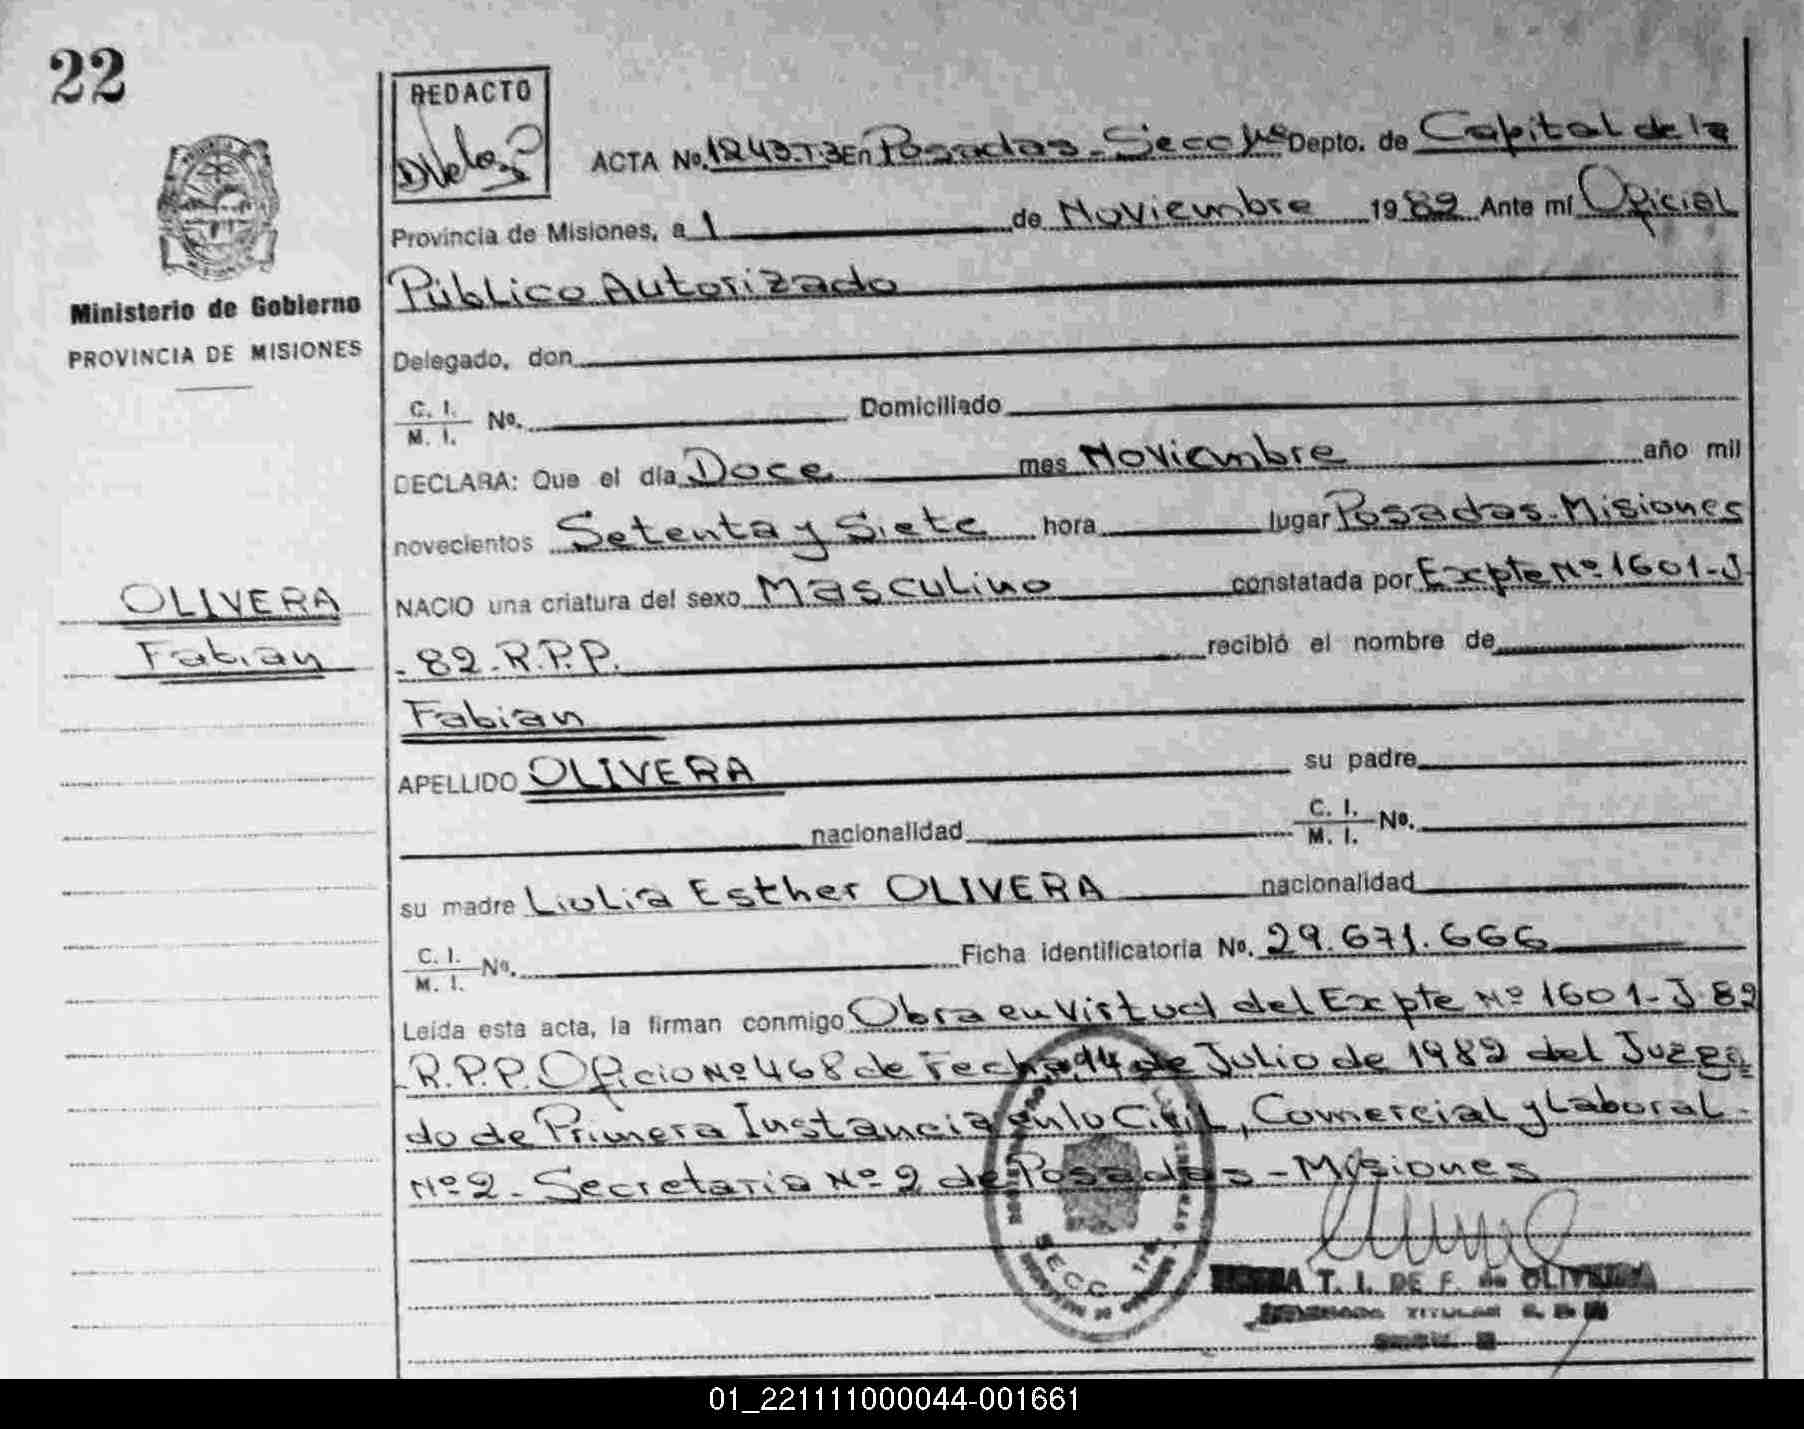 22
REDACTO
ACTA No. 1243.T.3 En Posadas - Secc 1ra Depto. de Capital de la
Provincia de Misiones, a 1 de Noviembre 1982 Ante mí Oficial
Público Autorizado
Ministerio de Gobierno
PROVINCIA DE MISIONES
Delegado, don
C. I.
M. I. No. Domiciliado
DECLARA: Que el día Doce mes Noviembre año mil
novecientos Setenta y Siete hora lugar Posadas - Misiones
OLIVERA
Fabian
NACIO una criatura del sexo Masculino constatada por Expte Nº 1601-J
- 82 - R.P.P. recibió el nombre de
Fabian
APELLIDO OLIVERA su padre
nacionalidad C. I.
M. I. No.
su madre Liulia Esther OLIVERA nacionalidad
C. I.
M. I. No. Ficha identificatoria No. 29.671.666
Leída esta acta, la firman conmigo Obra en Virtud del Expte Nº 1601-J-82
R.P.P. Oficio Nº 468 de Fecha 14 de Julio de 1982 del Juzga
do de Primera Instancia en lo Civil, Comercial y Laboral
Nº 2 - Secretaria Nº 2 de Posadas - Misiones
SECC. 1ra.
T. I. DE F. de OLIVEIRA
TITULAR
01_221111000044-001661